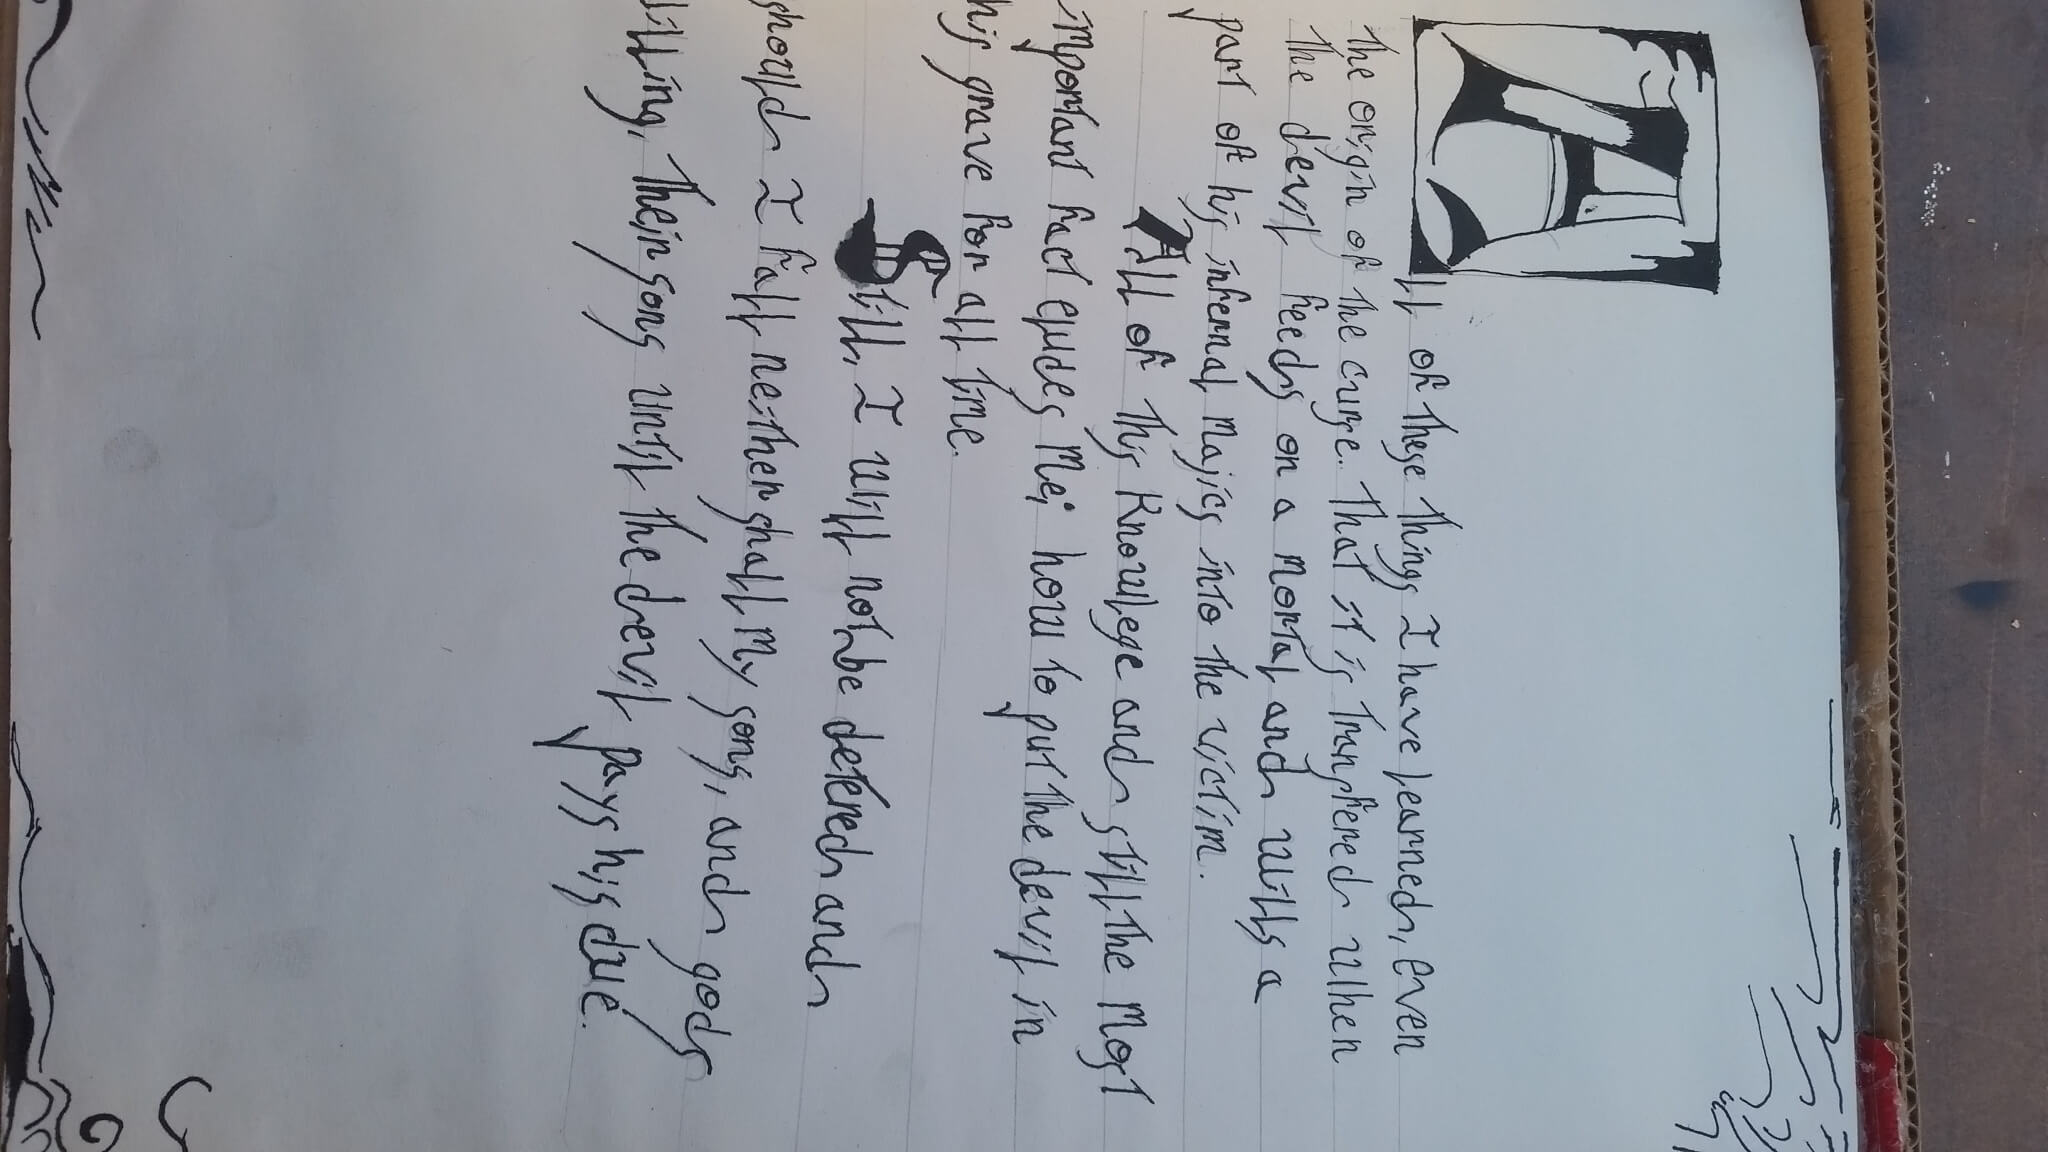 All of these things I have learned, even
the origin of the curse. That it is transfered when
the devil feeds on a mortal and wills a
part of his infernal majics into the victim.
All of this Knowlege and still the most
important fact eludes me; how to put the devil in
his grave for all time.
Still, I will not be detered and
should I fall neither shall my sons, and gods
willing, their sons until the devil pays his due.